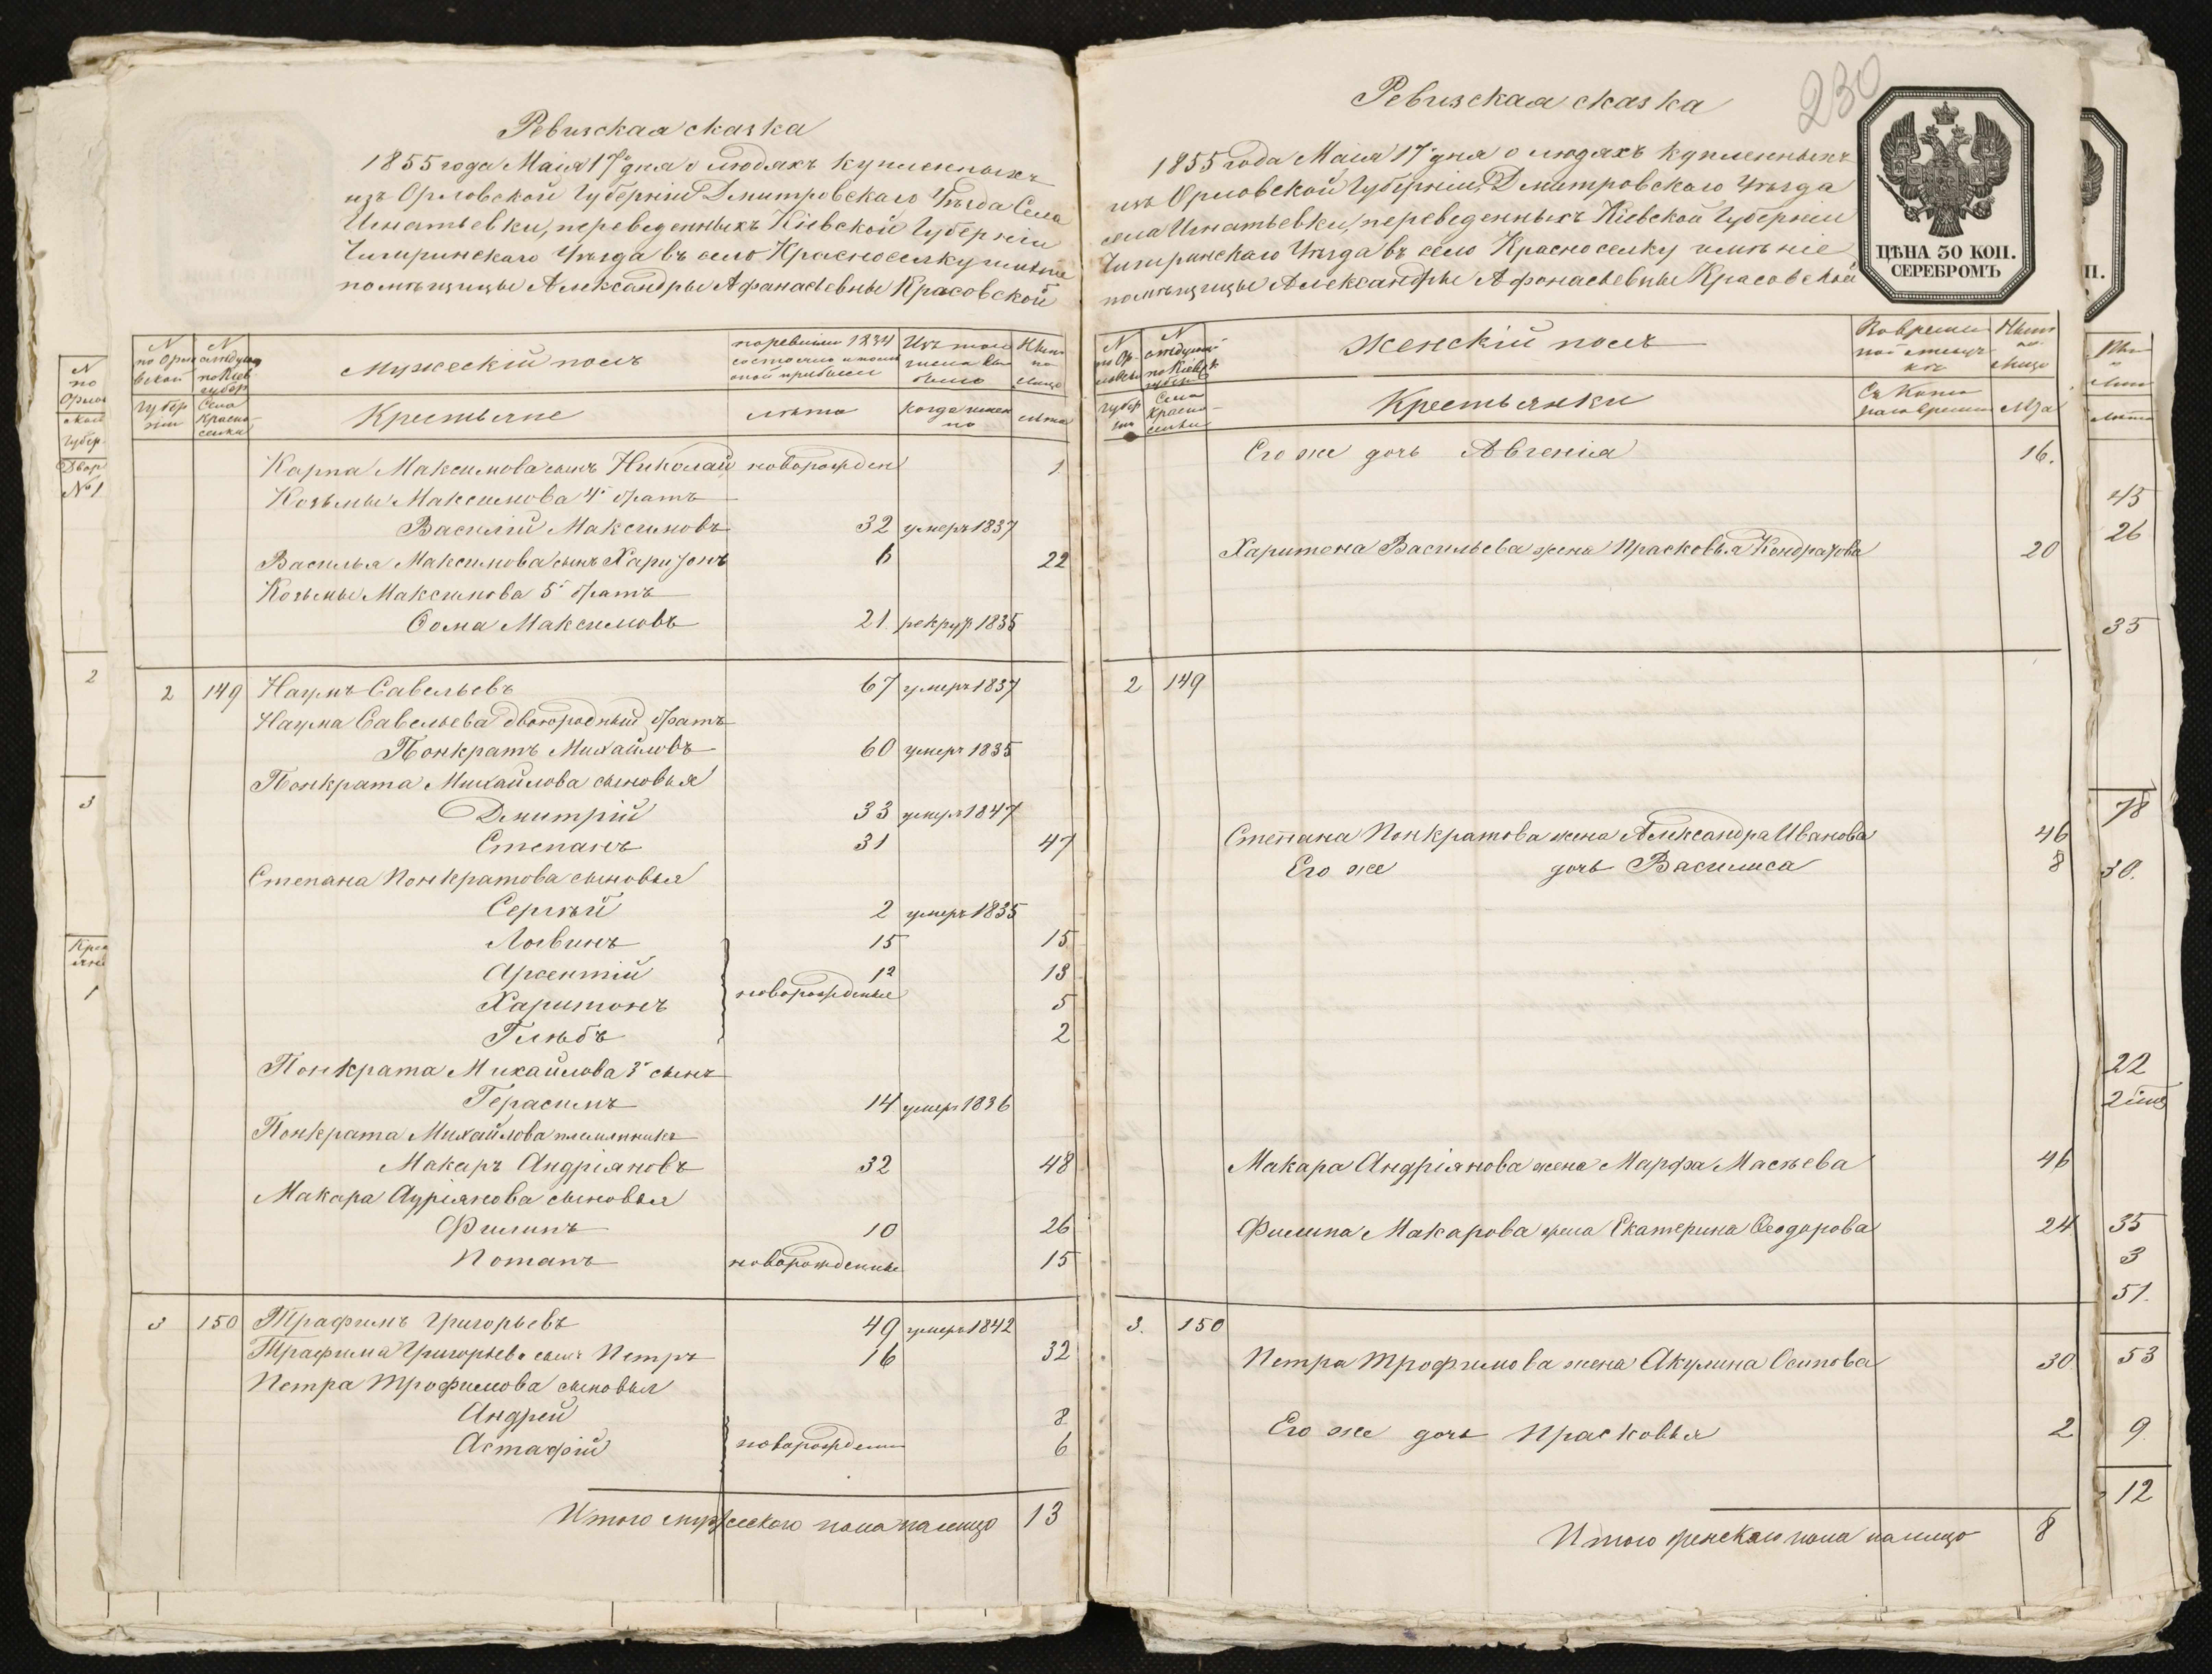 Ревизская сказка
1855 года Маія 17 дня о людяхъ купленныхъ
изъ Орловской Губерніи Дмитровскаго Уѣзда Села
Игнатьевки, переведенныхъ Кіевской Губерніи
Чигиринскаго Уѣзда въ село Красноселку имѣніе
помѣщицы Александры Афанасьевны Красовской
N по Орловской Губерніи
N слѣдующ по Кіев губер Села Красноселки
Мужескій полъ
по ревизіи 1834 состояло и после оной прибыло
Изъ того числа выбыло
Нынѣ на лицо
Крестьяне
лѣта
когда имен но
лѣта
Карпа Максимова сынъ Николай новорожден 1
Козьмы Максимова 4й братъ
Василій Максимовъ 32 умеръ 1837
Василья Максимова сынъ Харитонъ 6 22
Козьмы Максимова 5й братъ
Ѳома Максимовъ 21 рекрут 1835
2 149 Наумъ Савельевъ 67 умеръ 1837
Наума Савельева двоюродный братъ
Понкратъ Михайловъ 60 умеръ 1835
Понкрата Михайлова сыновья
Дмитрій 33 умеръ 1847
Степанъ 31 47
Степана Понкратова сыновья
Сергѣй 2 умеръ 1835
Логвинъ 15 15
Арсентій 12 13
Харитонъ новорожденые 5
Глѣбъ 2
Понкрата Михайлова 3й сынъ
Герасимъ 14 умеръ 1836
Понкрата Михайлова племянникъ
Макаръ Андріяновъ 32 48
Макара Адріянова сыновья
Филипъ 10 26
Потапъ новорожденные 15
3 150 Трафимъ Григорьевъ 49 умеръ 1842
Трафима Григорьева сынъ Петръ 16 32
Петра Трофимова сыновья
Андрей 8
Астафій новорожден 6
Итого мужескаго пола налицо 13
230
Ревизская сказка
1855 года Маія 17 дня о людяхъ купленныхъ
изъ Орловской Губерніи Дмитровскаго Уѣзда
села Игнатьевки, переведенныхъ Кіевской Губерніи
Чигиринскаго Уѣзда въ село Красноселку имѣніе
помѣщицы Александры Афонасьевны Красовской
ЦѢНА 30 КОП.
СЕРЕБРОМЪ
N по Орловской Губер нии
N слѣдующ по Кіевск губер Села Красноселки
Женскій полъ
Во временной отлучкѣ
Нынѣ на лицо
Крестьянки
Съ какого времени
Лѣта
Его же дочь Авгенія 16.
Харитона Васильева жена Прасковья Кондратова 20
2 149
Степана Понкратова жена Александра Иванова 46
Его же дочь Василиса 8
Макара Андріянова жена Марфа Масѣева 46
Филипа Макарова жена Екатерина Ѳеодорова 24
3. 150
Петра Трофимова жена Акулина Осипова 30
Его же дочь Прасковья 2
Итого женскаго пола налицо 8
N
по
Орлов
ской
Губер.
Двор
№1
2
3
Крес
1
П.
Лѣта
43
26
35
78
30.
22
35
3
51.
53
9
12